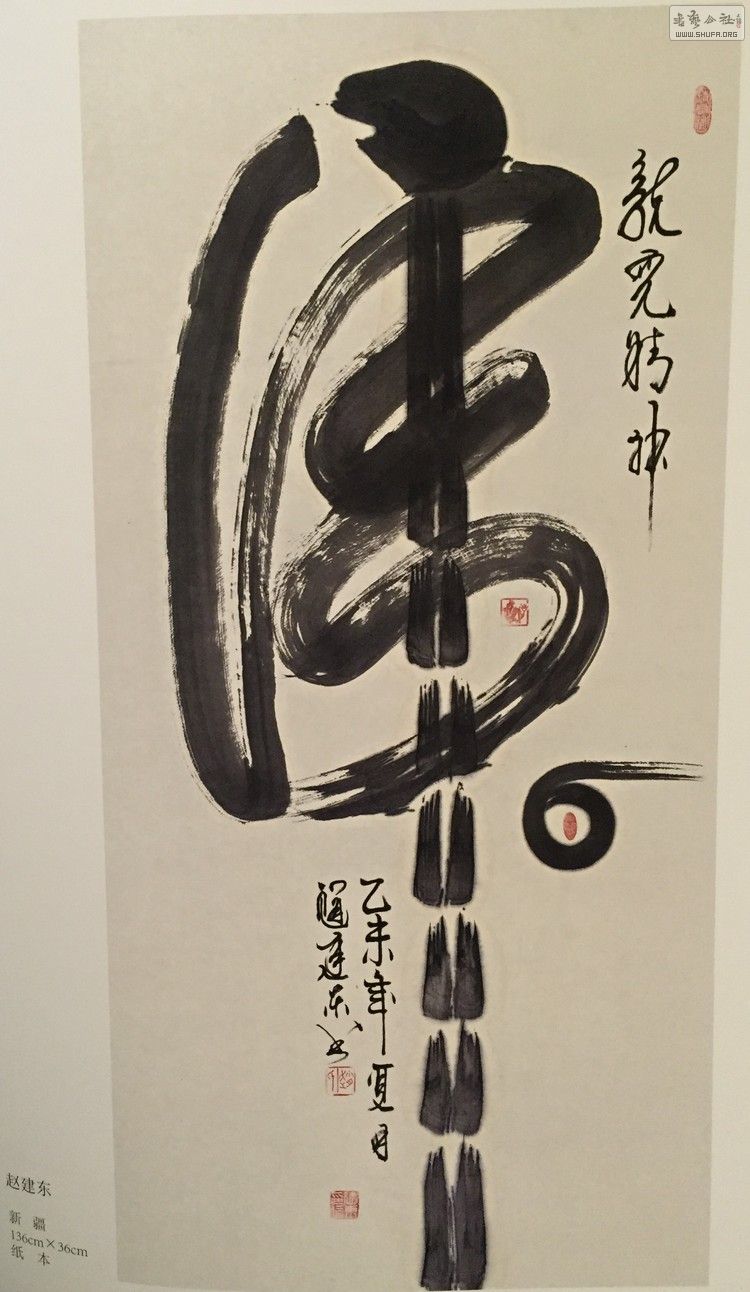 書藝公社
WWW.SHUFA.ORG
龍虎精神
乙未年夏月
趙建东书
赵建东
新疆
136cm×36cm
纸本